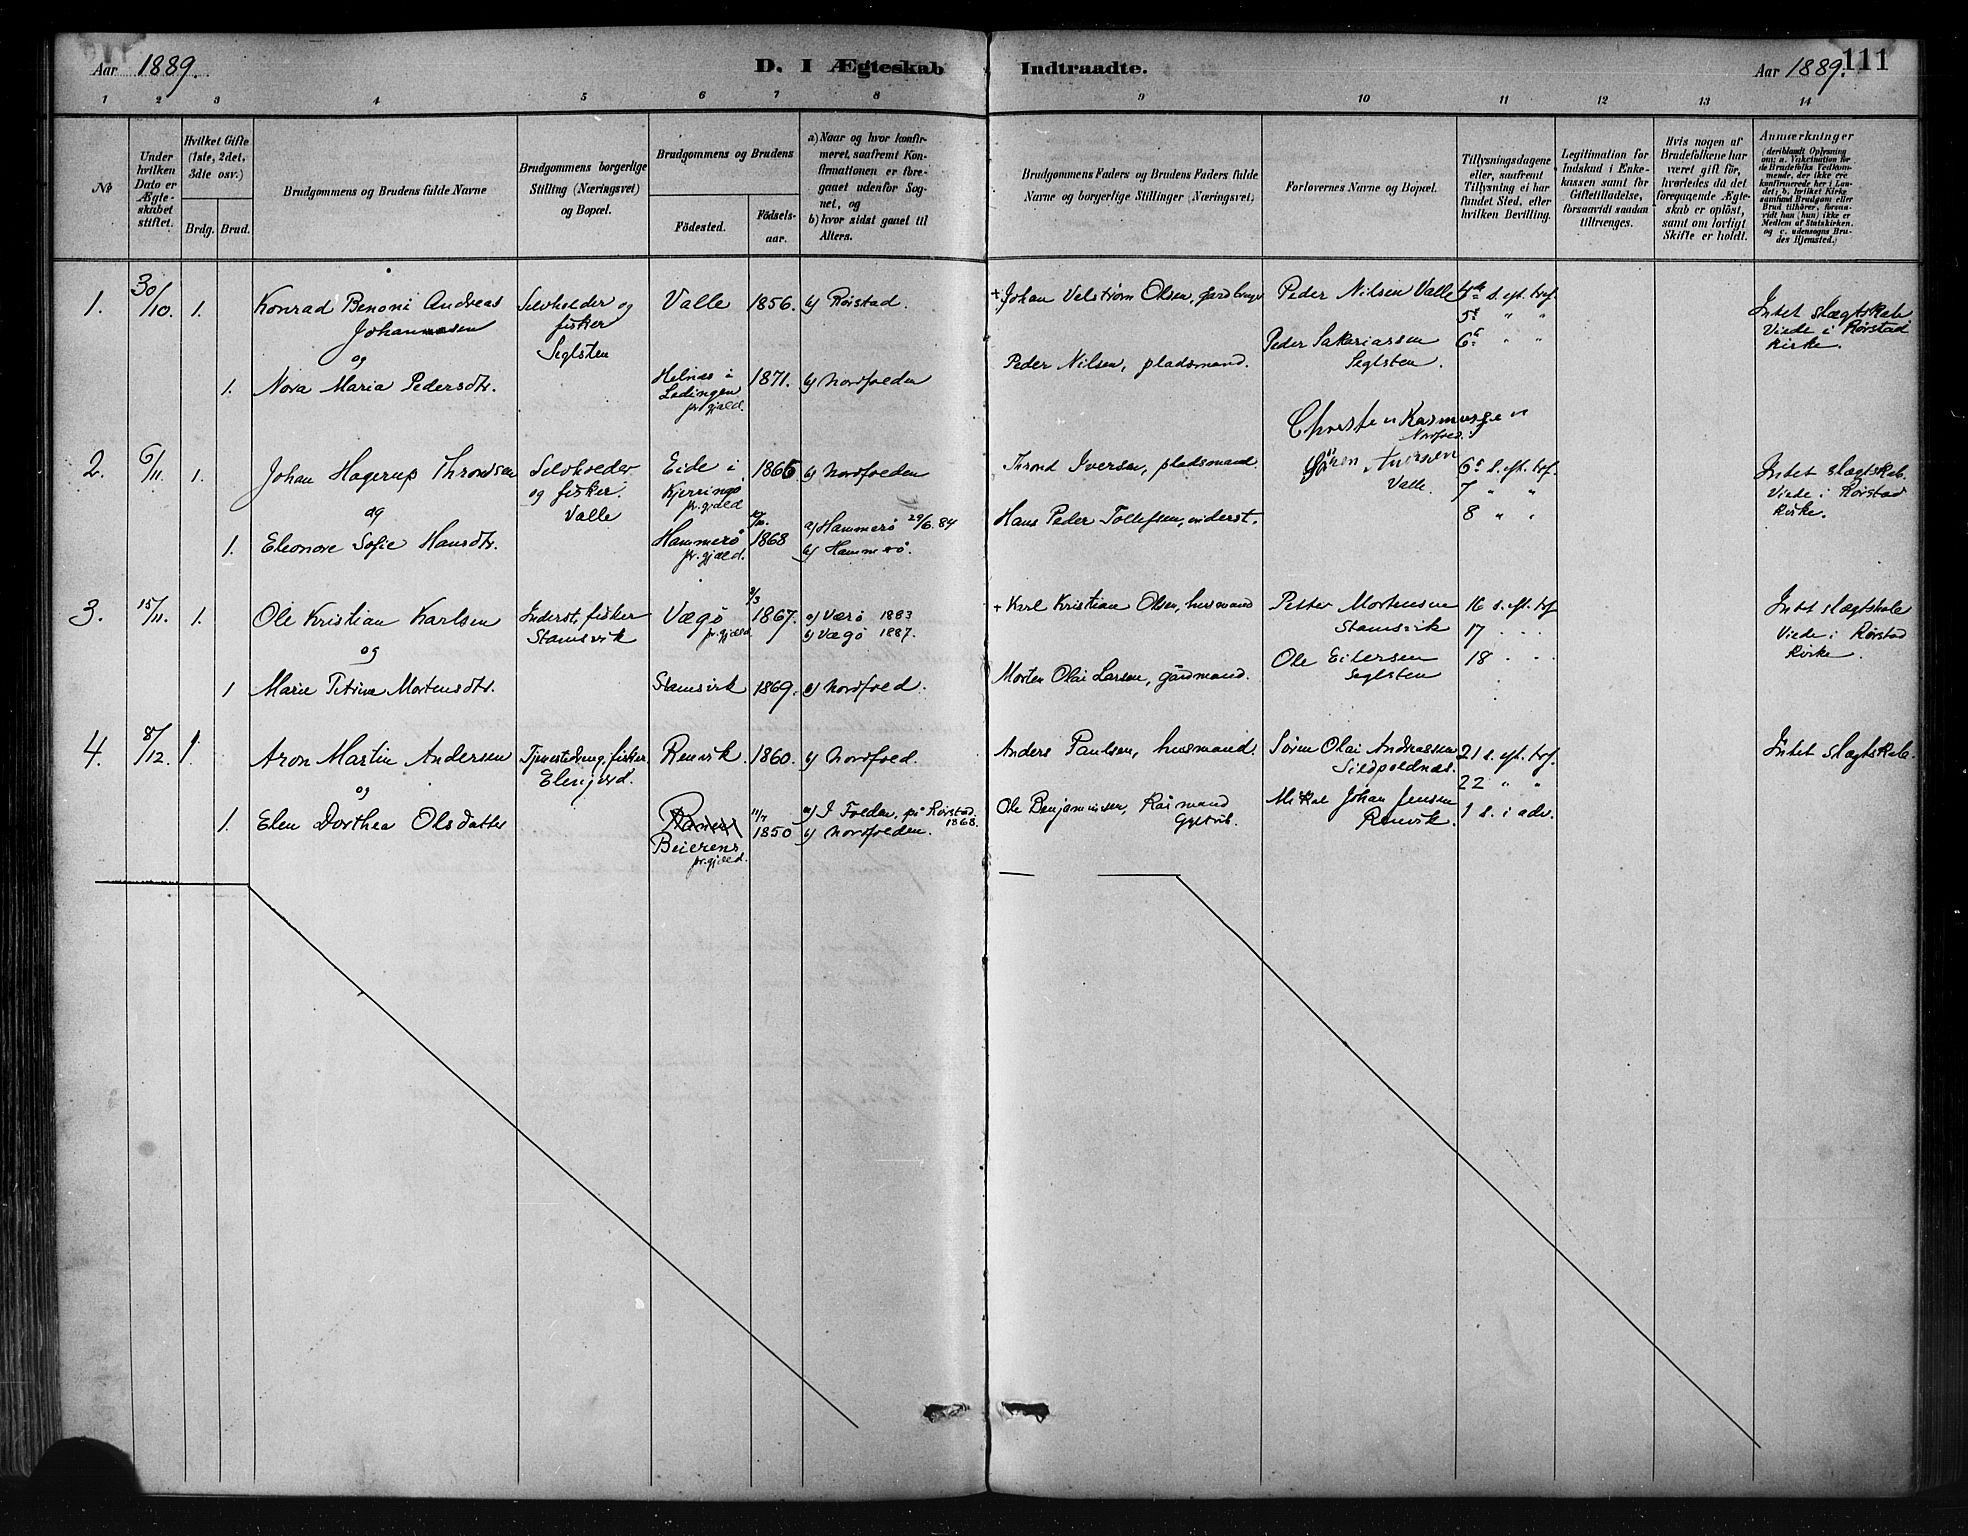 Aar 1889.
D. I Ægteskab Indtraadte.
Aar 1889.
111
1 2 3 4 5 6 7 8 9 10 11 12 13 14
No
Under hvilken Dato er Ægteskabet stiftet.
Hvilket Gifte (1ste, 2det, 3die osv.)
Brdg. Brud.
Brudgommens og Brudens fulde Navne
Brudgommens borgerlige Stilling (Næringsvei) og Bopæl.
Brudgommens og Brudens
Fødested.
Fødselsaar.
a) Naar og hvor konfirmeret, saafremt Konfirmationen er foregaaet udenfor Sognet, og
b) hvor sidst gaaet til Alters.
Brudgommens Faders og Brudens Faders fulde Navne og borgerlige Stillinger (Næringsvei)
Forlovernes Navne og Bopæl.
Tillysningsdagene eller, saafremt Tillysning ei har fundet Sted, efter hvilken Bevilling.
Legitimation for Indskud i Enkekassen samt for Giftetilladelse, forsaavidt saadan tiltrænges.
Hvis nogen af Brudefolkene har været gift før, hvorledes da det foregaaende Ægteskab er opløst, samt om lovligt Skifte er holdt.
Anmærkninger
(deriblandt Oplysning om: a. Vakcination for de Brudefolks Vedkommende, der ikke ere konfirmerede her i Landet; b. hvilket Kirkesamfund Brudgom eller Brud tilhører, forsaavidt han (hun) ikke er Medlem af Statskirken. og c. udensogns Brudes Hjemsted.)
1. 30/10. 1. Konrad Benoni Andreas Johannesen
Selvholder og fisker Seglsten
Valle 1856. b) Rørstad.
+ Johan Velstrøm Olsen, gaardbruger
Peder Nilsen Valle
5te s. eft. tref.
5t " "
6t " "
Intet slægtskab
Viede i Rørstad
Kirke.
og
1. Nora Maria Pedersdtr.
Helnæs i Lødingen pr.gjæld.
1871. b) Nordfolden
Peder Nilsen, pladsmand.
Peder Sakariassen
Seglsten.
2. 6/11. 1. Johan Hagerup Throndsen
Selvholder og fisker. Valle
Eide i Kjerringø pr.gjæld
1865 b) Nordfolden
Thrond Iversen, pladsmand
Christen Rasmussen
Nordfold.
Søren Andersen
Valle.
6t s. eft. tref.
7 " "
8 " "
Intet slægtskab.
Viede i Rørstad
Kirke.
og
1. Eleonore Sofie Hansdtr.
Hammerø pr.gjæld.
1868
a) Hammerø 29/6.84
b) Hammerø.
Hans Peder Tollefsen, inderst.
3. 15/11. 1. Ole Kristian Karlsen
Inderst, fisker
Stamsvik
Vægø pr.gjæld.
9/3 1867.
a) Værø 1883
b) Vægø 1887.
+ Karl Kristian Olsen, husmand
Petter Mortensen
Stamsvik
16 s. eft. tref
17 . . .
18 . . .
Intet slægtskab
Viede i Rørstad
Kirke.
og
1 Marie Petrine Mortensdtr.
Stamsvik 1869. b) Nordfold.
Morten Olai Larsen, gårdmand.
Ole Eilersen
Seglsten
4. 8/12. 1. Aron Martin Andersen
Tjenestedreng, fisker.
Elvegård.
Renvik 1860. b) Nordfold.
Anders Paulsen, husmand.
Søren Olai Andreassen
21 s. eft. tref.
22 " "
1 s. i adv.
Intet slægtskab.
og
1. Elen Dorthea Olsdatter
Beierens pr.gjæld.
11/7 1850
a) I Folden, på Rørstad 1868.
b) Nordfolden.
Ole Benjaminsen, Råsmand
Mikal Johan Jensen
Renvik.